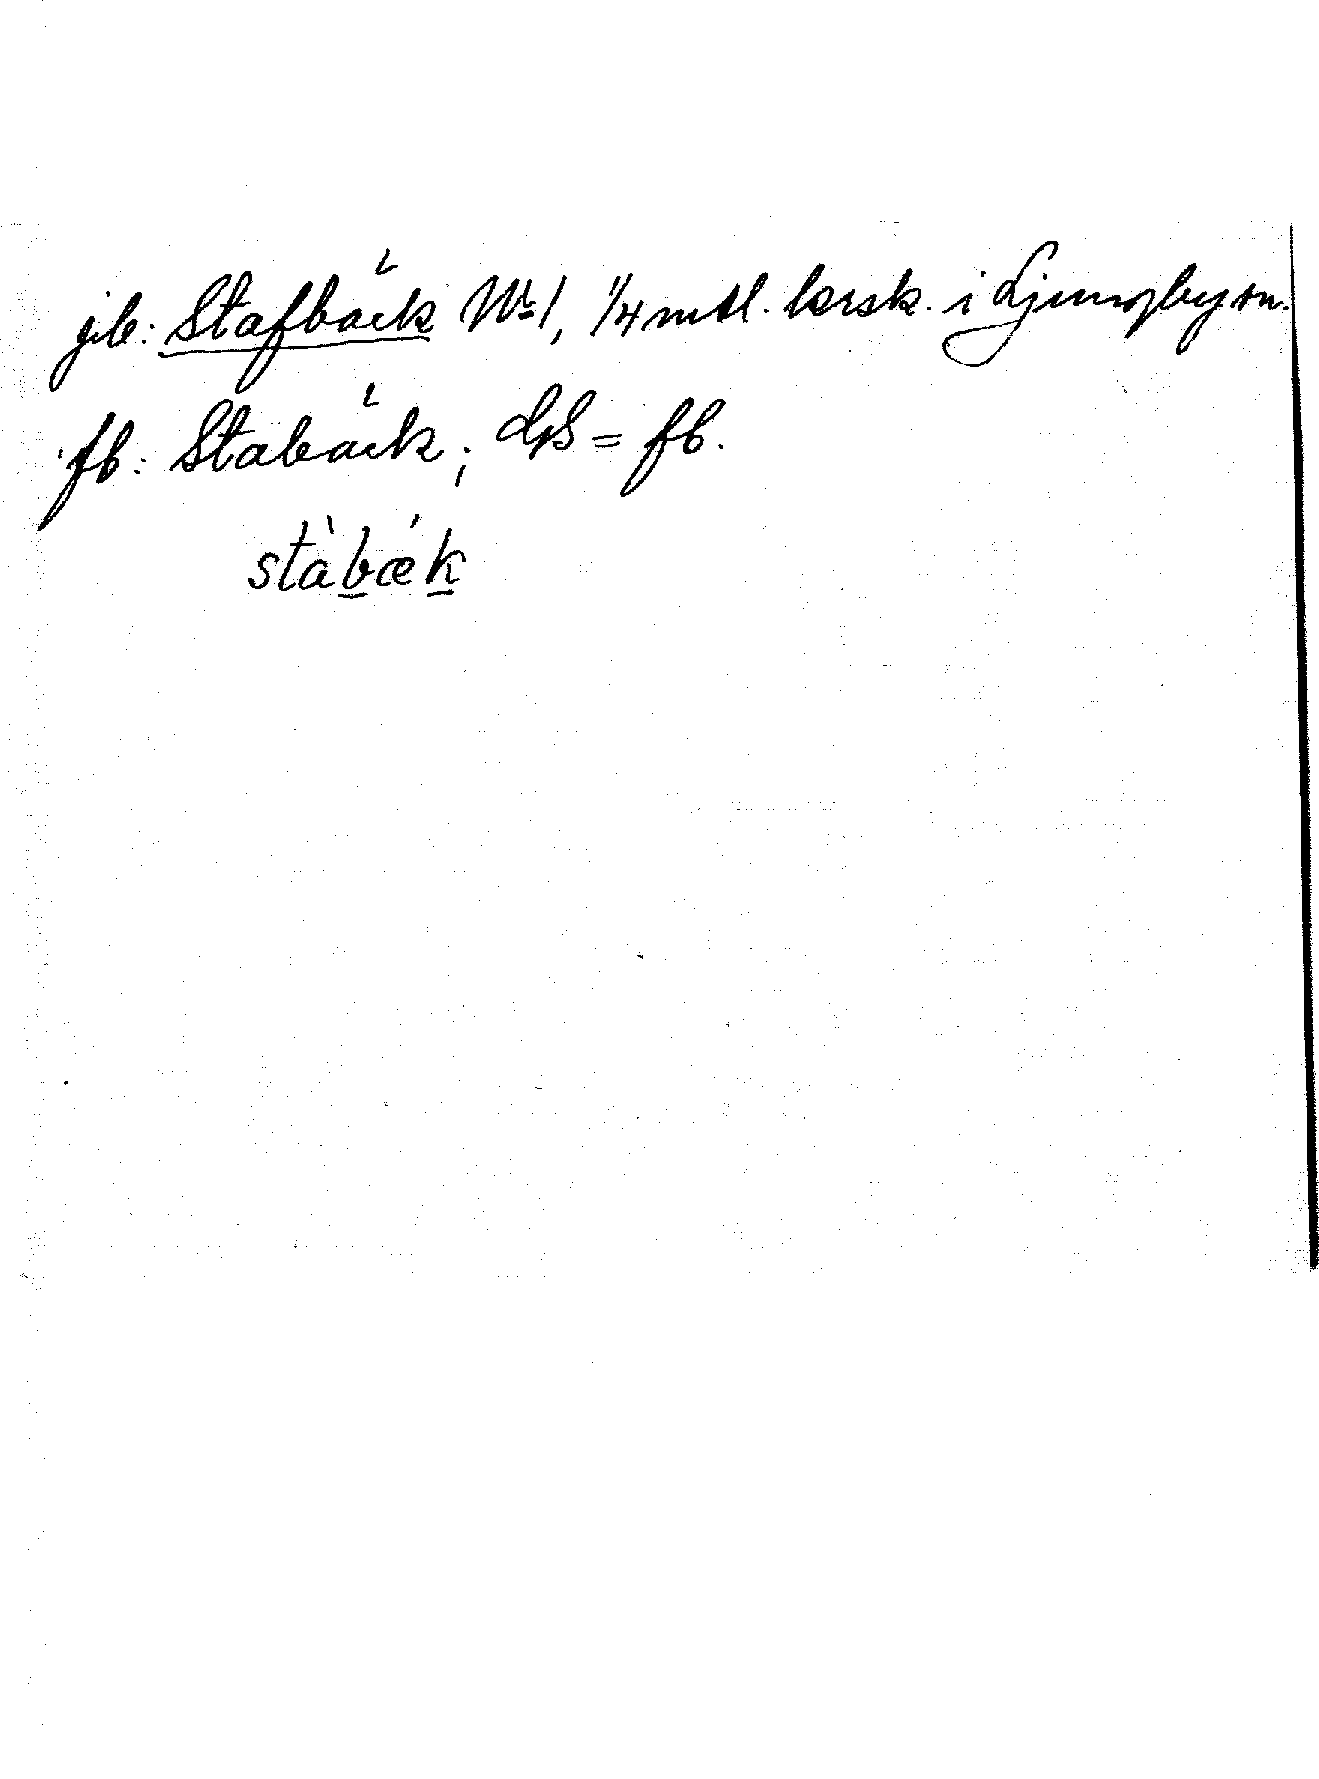 jb: Stafbäck № 1, 1/4 mtl. krsk. i Ljungby sn.
fb: Stabäck; GS = fb.
stàbǽk